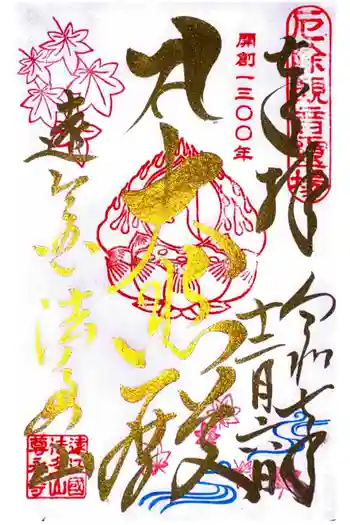 厄除観音霊場
奉拝
令和七年
十二月二日
開創一三〇〇年
大悲殿
遠州
法多山
遠江國
法多山
尊永寺